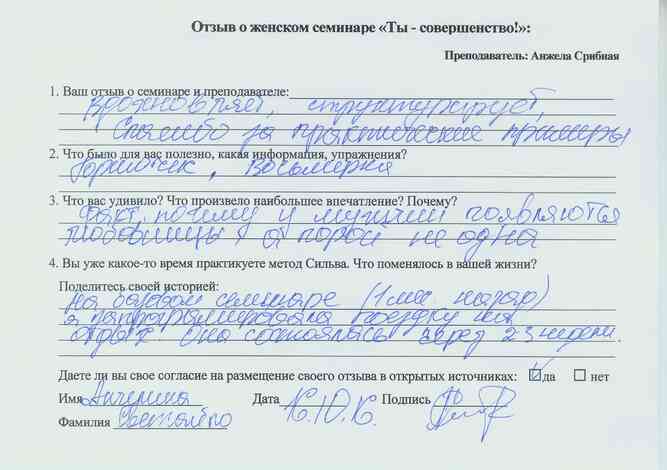 Отзыв о женском семинаре «Ты - совершенство!»:
Преподаватель: Анжела Срибная
1. Ваш отзыв о семинаре и преподавателе:
Вдохновляет, структурирует,
Спасибо за практические примеры
2. Что было для вас полезно, какая информация, упражнения?
Горшочек, Восьмерка
3. Что вас удивило? Что произвело наибольшее впечатление? Почему?
Факт, почему у мужчин появляются
любовницы, а порой не одна
4. Вы уже какое-то время практикуете метод Сильва. Что поменялось в вашей жизни?
Поделитесь своей историей:
на базовом семинаре (1 мес. назад)
я запрограммировала поездку на
отдых. Она состоялась через 2 недели.
Даете ли вы свое согласие на размещение своего отзыва в открытых источниках: да нет
Имя Ангелина Дата К.Ю.К. Подпись
Фамилия